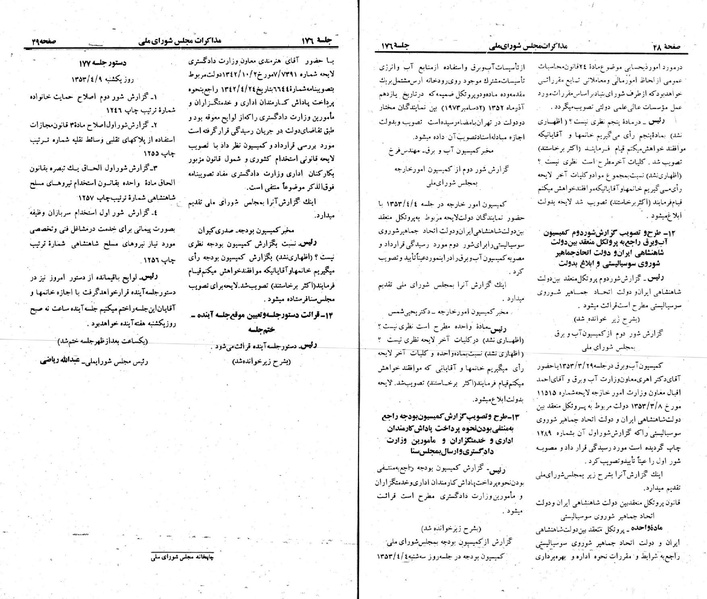 صفحهٔ ۲۸
مذاکرات مجلس شورای ملی
جلسهٔ ۱۷۶
درمورد امورذیحسابی موضوع مادهٔ ۲۴ قانون محاسبات
عمومی از لحاظ امور مالی و معاملاتی تابع مقرراتی
خواهندبود که از طرف شورای بنیاد بر اساس مقررات مورد
عمل مؤسسات عالی علمی دولتی تصویب میگردد.
رئیس ـ درمادهٔ پنجم نظری نیست؟ (اظهاری
نشد) بمادهٔ پنجم رأی می‌گیریم خانمها و آقایانیکه
موافقند خواهش میکنم قیام فرمایند (اکثر برخاستند)
تصویب شد. در کلیات آخر مطرح است نظری نیست؟
(اظهاری نشد) نسبت بمجموع مواد و کلیات آخر لایحه
رأی می‌گیریم خانمها و آقایانیکه موافقند خواهش میکنم
قیام فرمایند (اکثر برخاستند) تصویب شد لایحه بدولت
ابلاغ میشود.
۱۲ـ طرح و تصویب گزارش شور دوم کمیسیون
آب و برق راجع به پروتکل منعقد بین دولت
شاهنشاهی ایران و دولت اتحاد جماهیر
شوروی سوسیالیستی و ابلاغ بدولت
رئیس ـ گزارش شور دوم پروتکل منعقد بین دولت
شاهنشاهی ایران و دولت اتحاد جماهیر شوروی
سوسیالیستی مطرح است قرائت میشود.
(بشرح زیر خوانده شد)
گزارش شور دوم از کمیسیون آب و برق
به مجلس شورای ملی
کمیسیون آب و برق در جلسه ۱۳۵۳/۳/۲۹ با حضور
آقای دکتر اهری معاون وزارت آب و برق و آقای احمد
اقبال معاون وزارت امور خارجه لایحه شماره ۱۱۵۱۵
مورخ ۱۳۵۳/۳/۸ دولت مربوط به پروتکل منعقد بین
دولت شاهنشاهی ایران و دولت اتحاد جماهیر شوروی
سوسیالیستی را که گزارش شور اول آن بشماره ۱۲۸۹
چاپ گردیده است مورد رسیدگی قرار داد و مصوبه
شور اول را عیناً تأیید و تصویب کرد.
اینک گزارش آنرا بشرح زیر بمجلس شورای ملی
تقدیم میدارد.
قانون پروتکل منعقد بین دولت شاهنشاهی ایران و دولت
اتحاد جماهیر شوروی سوسیالیستی
مادهٔ واحده ـ پروتکل منعقد بین دولت شاهنشاهی
ایران و دولت اتحاد جماهیر شوروی سوسیالیستی
راجع به شرایط و مقررات نحوه اداره و بهره‌برداری
از تأسیسات آب و برق و استفاده از منابع آب و انرژی
تأسیسات مشترک موجود روی رودخانه ارس مشتمل بر یک
مقدمه و ده ماده و دو پروتکل ضمیمه که در تاریخ یازدهم
آذر ماه ۱۳۵۲ (۲ دسامبر ۱۹۷۳) بین نمایندگان مختار
دو دولت در تهران بامضاء رسیده است تصویب و بدولت
اجازه مبادله اسناد تصویب آن داده میشود.
مخبر کمیسیون آب و برق ـ مهندس فرخ
گزارش شور دوم از کمیسیون امور خارجه
به مجلس شورای ملی
کمیسیون امور خارجه در جلسه ۱۳۵۳/۴/۴ با
حضور نمایندگان دولت لایحه مربوط به پروتکل منعقد
بین دولت شاهنشاهی ایران و دولت اتحاد جماهیر شوروی
سوسیالیستی را برای شور دوم مورد رسیدگی قرار داد و
مصوبه کمیسیون آب و برق را در این مورد عیناً تأیید و تصویب
کرد.
اینک گزارش آنرا بمجلس شورای ملی تقدیم
میدارد.
مخبر کمیسیون امور خارجه ـ دکتر یحیی شمس
رئیس ـ ماده واحده مطرح است نظری نیست؟
(اظهاری نشد) در کلیات آخر لایحه نظری نیست؟
(اظهاری نشد) نسبت بماده واحده و کلیات آخر لایحه
رأی میگیریم خانمها و آقایانی که موافقند خواهش
میکنم قیام فرمایند (اکثر برخاستند) تصویب شد. لایحه
بدولت ابلاغ میشود.
۱۳ـ طرح و تصویب گزارش کمیسیون بودجه راجع
به منتفی بودن نحوه پرداخت پاداش کارمندان
اداری و خدمتگزاران و مأمورین وزارت
دادگستری و ارسال به مجلس سنا
رئیس ـ گزارش کمیسیون بودجه راجع به منتفی
بودن نحوه پرداخت پاداش کارمندان اداری و خدمتگزاران
و مأمورین وزارت دادگستری مطرح است قرائت
میشود.
(بشرح زیر خوانده شد)
گزارش از کمیسیون بودجه به مجلس شورای ملی
کمیسیون بودجه در جلسه روز سه‌شنبه ۱۳۵۳/۴/۴
جلسهٔ ۱۷۶
مذاکرات مجلس شورای ملی
صفحهٔ ۲۹
با حضور آقای هنرمندی معاون وزارت دادگستری
لایحه شماره ۷/۷۳۹۱ مورخ ۱۳۴۲/۱۰/۲ دولت مربوط
بتصویبنامه شماره ۶۶۴۴ بتاریخ ۱۳۴۲/۴/۲۴ راجع به
پرداخت پاداش کارمندان اداری و خدمتگزاران و
مأمورین وزارت دادگستری را که از لوایح معوقه بود و
طبق تقاضای دولت در جریان رسیدگی قرار گرفته است
مورد بررسی قرار داد و کمیسیون نظر داد با تصویب
لایحه قانونی استخدام کشوری و شمول قانون مزبور
بکارکنان اداری وزارت دادگستری مفاد تصویبنامه
فوق‌الذکر موضوعاً منتفی است.
اینک گزارش آنرا بمجلس شورای ملی تقدیم
میدارد.
مخبر کمیسیون بودجه ـ صدری کیوان
رئیس ـ نسبت بگزارش کمیسیون بودجه نظری
نیست؟ (اظهاری نشد) بگزارش کمیسیون بودجه رأی
میگیریم خانمها و آقایانیکه موافقند خواهش میکنم قیام
فرمایند (اکثر برخاستند) تصویب شد. لایحه برای تصویب
مجلس سنا فرستاده میشود.
۱۴ـ قرائت دستور جلسه و تعیین موقع جلسه آینده ـ
ختم جلسه
رئیس ـ دستور جلسه آینده قرائت می‌شود.
(بشرح زیر خوانده شد)
دستور جلسه ۱۷۷
روز یکشنبه ۱۳۵۳/۴/۹
۱ـ گزارش شور دوم اصلاح حمایت خانواده
شمارهٔ ترتیب چاپ ۱۲۴۶
۲ـ گزارش شور اول اصلاح مادهٔ ۳ قانون مجازات
استفاده از پلاکهای تقلبی وسائط نقلیه شماره ترتیب
چاپ ۱۲۵۵
۳ـ گزارش شور اول الحاق یک تبصره بقانون
الحاق ماده واحده بقانون استخدام نیروهای مسلح
شاهنشاهی شماره ترتیب چاپ ۱۲۵۷
۴ـ گزارش شور اول استخدام سربازان وظیفه
بصورت پیمانی برای خدمت در مشاغل فنی و تخصصی
مورد نیاز نیروهای مسلح شاهنشاهی شماره ترتیب
چاپ ۱۲۵۶
رئیس ـ لوایح باقیمانده از دستور امروز نیز در
دستور جلسه آینده قرار خواهد گرفت با اجازه خانمها و
آقایان این جلسه را ختم میکنیم جلسه آینده ساعت نه صبح
روز یکشنبه هفته آینده خواهد بود.
(یکساعت بعد از ظهر جلسه ختم شد)
رئیس مجلس شورای ملی ـ عبدالله ریاضی
چاپخانه مجلس شورای ملی